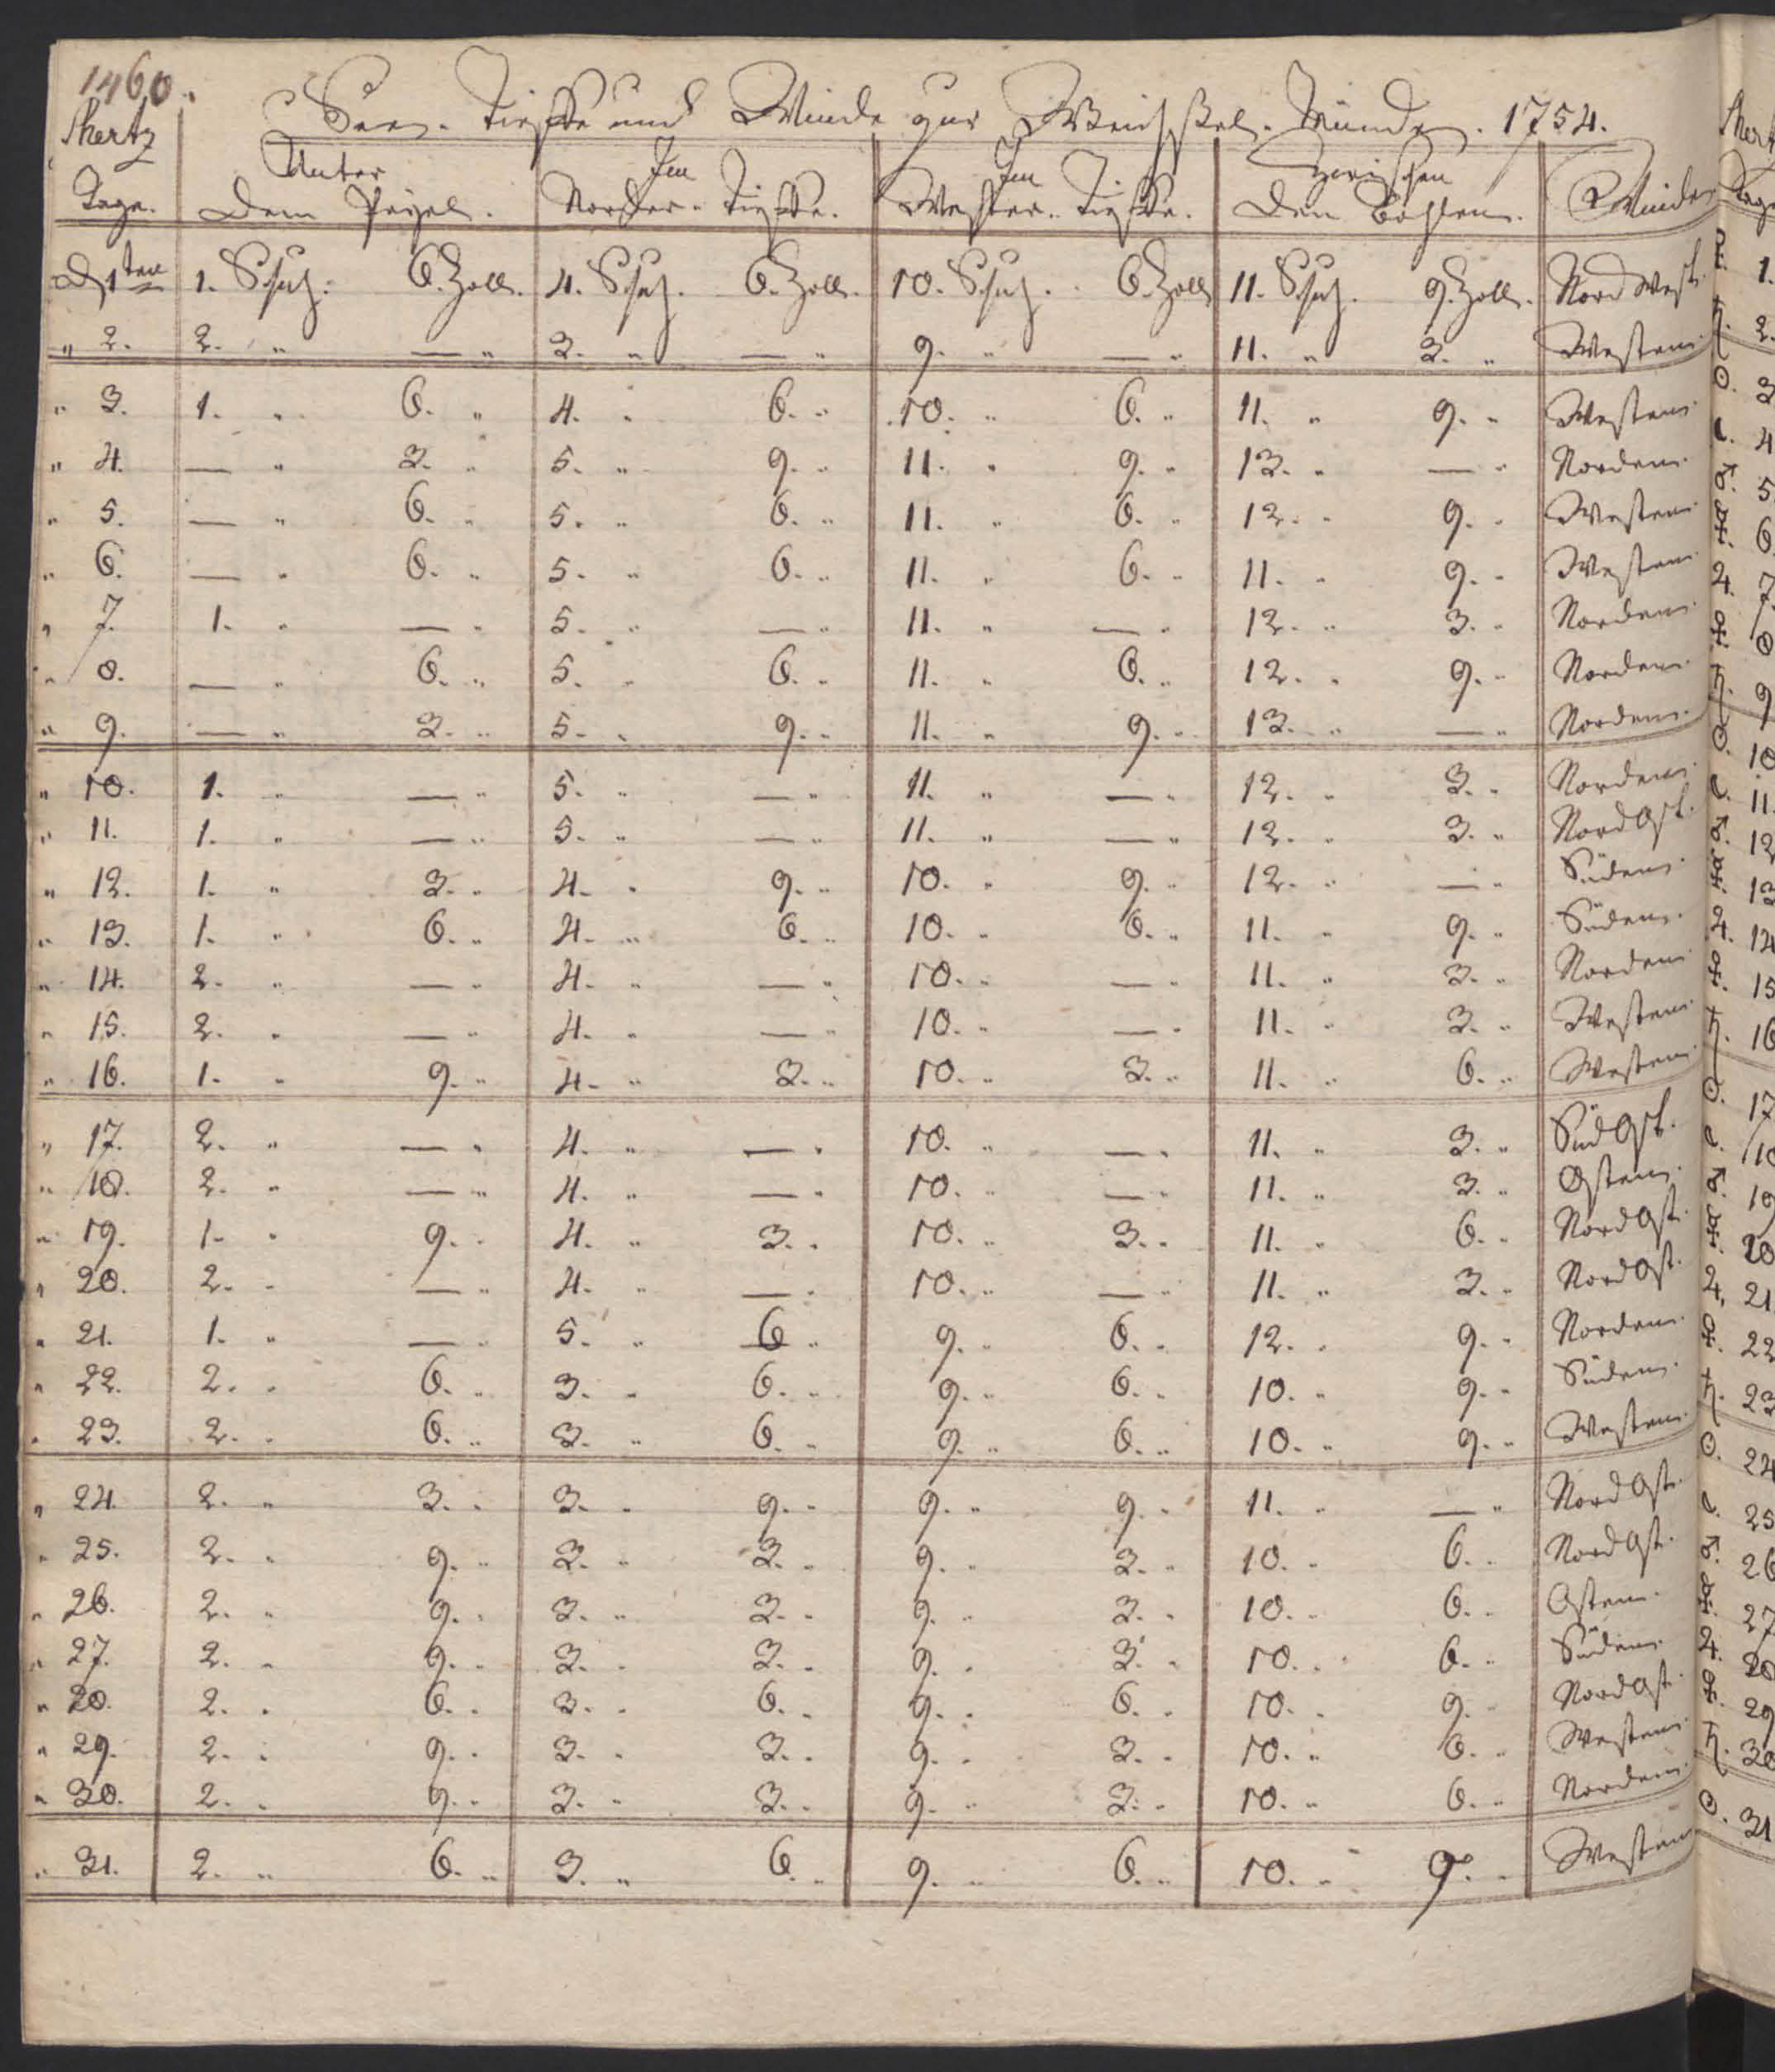 1460.
See-Tieffe und Winde zur Weichßel-Münde. 1754.
Mertz
Tage. Unter dem Peÿel. Im Norder-Tieffe. Im Wester-Tieffe. Zwischen den Bohlen. Winde
D 1ten 1. Schuh. 6. Zoll. 4. Schuh. 6. Zoll. 10. Schuh. 6. Zoll 11. Schuh. 9. Zoll. Nord West.
" 2. 2. " — " 3. " — " 9. " — " 11. " 3. " Westen.
" 3. 1. " 6. " 4. " 6. " 10. " 6. " 11. " 9. " Westen.
" 4. — " 3. " 5. " 9. " 11. " 9. " 13. " — " Norden.
" 5. — " 6. " 5. " 6. " 11. " 6. " 12. " 9. " Westen.
" 6. — " 6. " 5. " 6. " 11. " 6. " 11. " 9. " Westen.
" 7. 1. " — " 5. " — " 11. " — " 12. " 3. " Norden.
" 8. — " 6. " 5. " 6. " 11. " 6. " 12. " 9. " Norden.
" 9. — " 3. " 5. " 9. " 11. " 9. " 13. " — " Norden.
" 10. 1. " — " 5. " — " 11. " — " 12. " 3. " Norden.
" 11. 1. " — " 5. " — " 11. " — " 12. " 3. " Nord Ost.
" 12. 1. " 3. " 4. " 9. " 10. " 9. " 12. " — " Süden.
" 13. 1. " 6. " 4. " 6. " 10. " 6. " 11. " 9. " Süden.
" 14. 2. " — " 4. " — " 10. " — " 11. " 3. " Norden
" 15. 2. " — " 4. " — " 10. " — " 11. " 3. " Westen.
" 16. 1. " 9. " 4. " 3. " 10. " 3. " 11. " 6. " Westen.
" 17. 2. " — " 4. " — " 10. " — " 11. " 3. " Süd Ost.
" 18. 2. " — " 4. " — " 10. " — " 11. " 3. " Osten.
" 19. 1. " 9. " 4. " 3. " 10. " 3. " 11. " 6. " Nord Ost.
" 20. 2. " — " 4. " — " 10. " — " 11. " 3. " Nord Ost.
" 21. 1. " — " 5. " 6 " 9. " 6. " 12. " 9. " Norden.
" 22. 2. " 6. " 3. " 6. " 9. " 6. " 10. " 9. " Süden.
" 23. 2. " 6. " 3. " 6. " 9. " 6. " 10. " 9. " Westen.
" 24. 2. " 3. " 3. " 9. " 9. " 9. " 11. " — " Nord Ost.
" 25. 2. " 9. " 3. " 3. " 9. " 3. " 10. " 6. " Nord Ost.
" 26. 2. " 9. " 3. " 3. " 9. " 3. " 10. " 6. " Osten.
" 27. 2. " 9. " 3. " 3. " 9. " 3. " 10. " 6. " Süden.
" 28. 2. " 6. " 3. " 6. " 9. " 6. " 10. " 9. " Nord Ost.
" 29. 2. " 9. " 3. " 3. " 9. " 3. " 10. " 6. " Westen.
" 30. 2. " 9. " 3. " 3. " 9. " 3. " 10. " 6. " Norden.
" 31. 2. " 6. " 3. " 6. " 9. " 6. " 10. " 9. " Westen